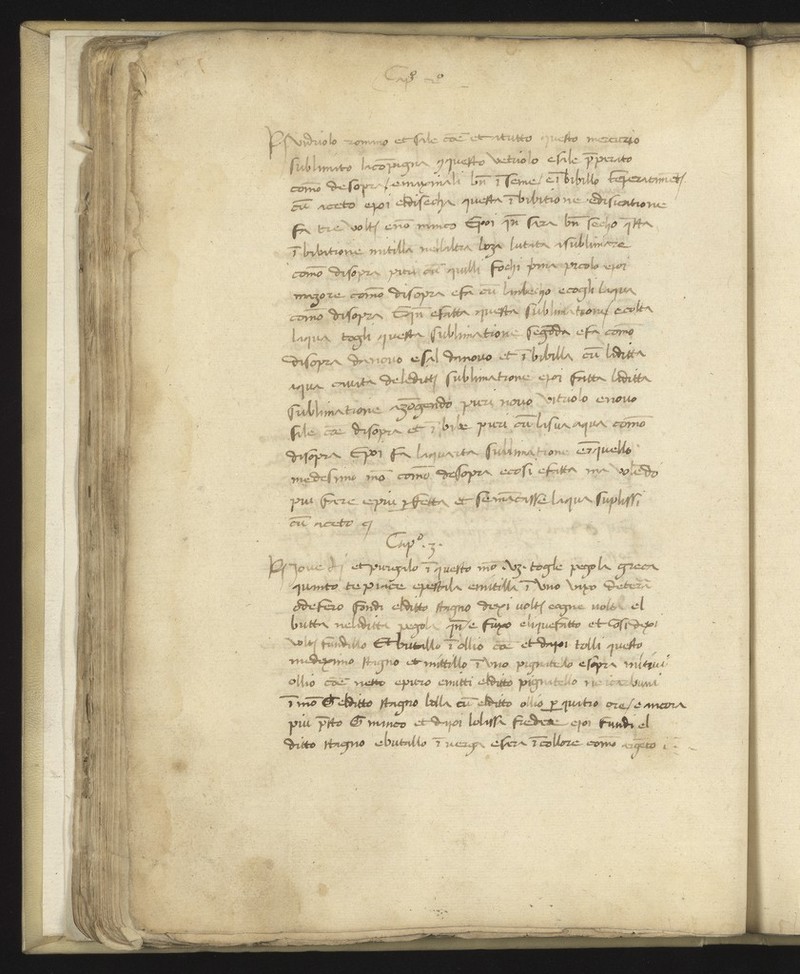 Cap° 2°
Rx vidriolo romano et sale coē et itutto questo mercurio
sublimato lacōpagna questo vetriolo e sale pperato
como de sopra / e macinali bn īseme / e ībibillo tēperatamet
cū aceto epoi eldisecha questa ībibitione edisicatione
fa tre volte eno manco Epoi qn sara bn secho qsta
ībibitione mitilla nelaltra boza lutata asublimare
como disopra pure cū quilli fochi pma picolo epoi
mazore como disopra efa cū lambicho ecogli laqua
como disopra Eqn efatta questa sublimatione ecolta
laqua togli questa sublimatione segōda e fa como
disopra danovo e sal danovo et ībibilla cū laditta
aqua cavata deleditte sublimatione epoi fatta laditta
sublimatione azōgendo puri novo vitriolo enovo
sale coē disopra et ībibe puri cū lasua aqua como
disopra Epoi fa laquarta sublimatione ēquello
medesimo mō como desopra ecosi efatta ma volēdo
piu fare epiu pfetta et semācasse laqua suplissi
cū aceto
Cap° .3.
Rx Jove et purgalo ī questo mō .vz. togle pegola greca
quanto te piace epestala emitilla ī uno vaxo de terā
o de fero fondi elditto stagno dexi volte eogne volta el
butta neladitta pegola qn e fuxo eliquefatto et cosi dexi
volte fundillo Et butallo ī ollio coē et dapoi tolli questo
medeximo stagno et mittillo ī uno pignatello esopra
ollio coē netto epuro emitti elditto pignatello
ī mō elditto stagno bolla cū elditto ollio per quatro ore / e ancora
piu psto manco et dapoi lolassa fredare epoi fundi el
ditto stagno ebutallo ī verga esara ī collore como argēto